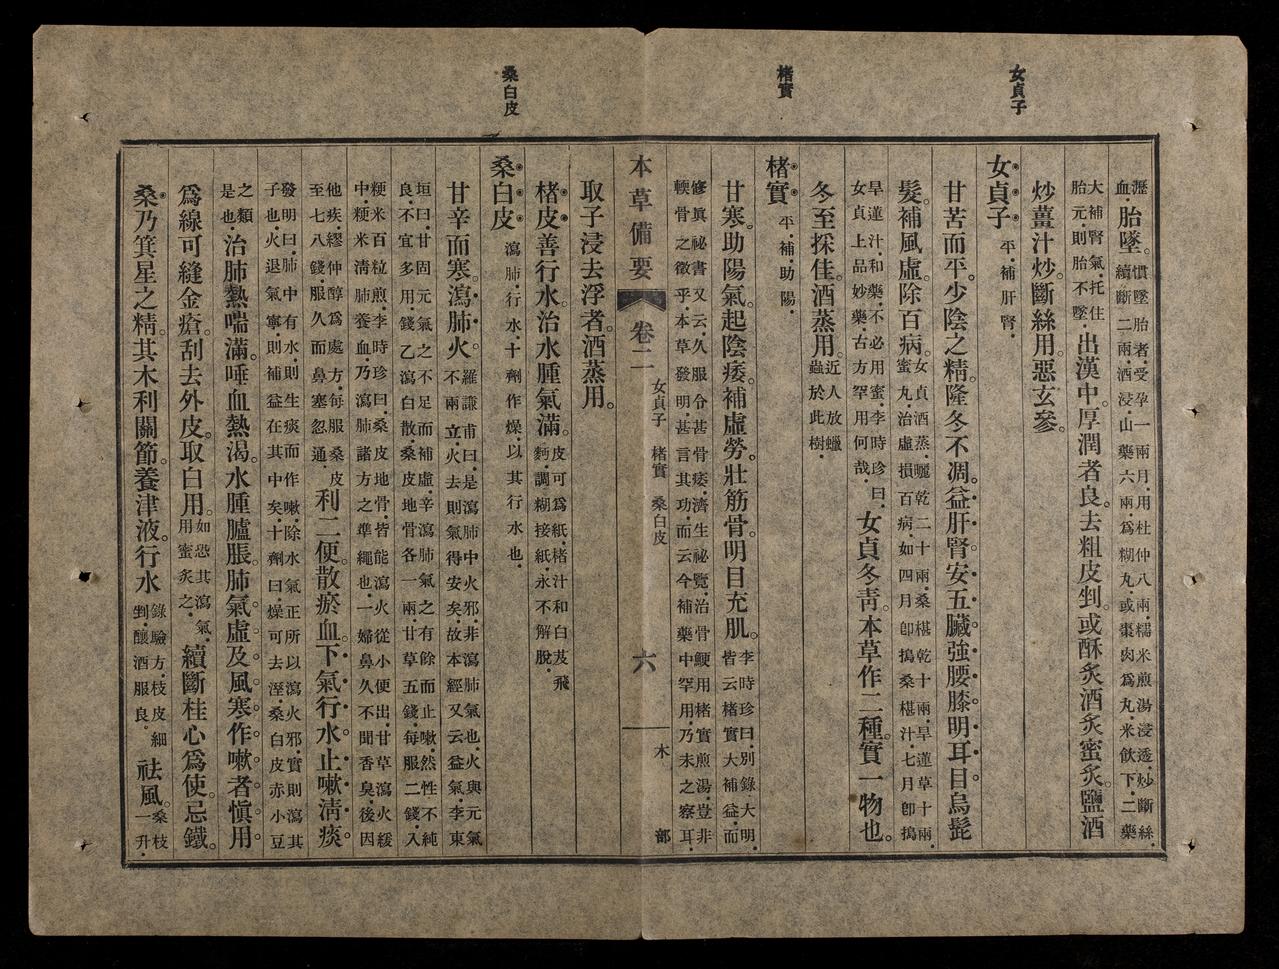 女貞子
楮實
桑白皮
瀝血胎墜。慣墜胎者受孕一兩月用杜仲八兩糯米煎湯浸透炒斷絲續斷二兩酒浸山藥六兩爲糊丸或棗肉爲丸米飲下二藥
大補腎氣托住胎元則胎不墜出漢中。厚潤者良。去粗皮剉。或酥炙酒炙蜜炙。鹽酒
炒薑汁炒。斷絲用。惡玄參。
女貞子平補肝腎
甘苦而平。少陰之精。隆冬不凋。益肝腎。安五臟。強腰膝。明耳目。烏髭
髮。補風虛。除百病。女貞酒蒸曬乾二十兩桑椹乾十兩旱蓮草十兩蜜丸治虛損百病如四月卽搗桑椹汁七月卽搗
旱蓮汁和藥不必用蜜李時珍曰女貞上品妙藥古方罕用何哉女貞冬靑。本草作二種。實一物也。
冬至採佳。酒蒸用。近人放蠟蟲於此樹
楮實平補助陽
甘寒。助陽氣。起陰痿。補虛勞。壯筋骨。明目充肌。李時珍曰別錄大明皆云楮實大補益而
修眞祕書又云久服令甚骨痿濟生祕覽治骨鯁用楮實煎湯豈非輭骨之徵乎本草發明甚言其功而云今補藥中罕用乃未之察耳
本草備要
卷二
女貞子 楮實 桑白皮
六
木部
取子浸去浮者。酒蒸用。
楮皮善行水。治水腫氣滿。皮可爲紙楮汁和白芨飛麪調糊接紙永不解脫
桑白皮瀉肺行水十劑作燥以其行水也
甘辛而寒。瀉肺火。羅謙甫曰是瀉肺中火邪非瀉肺氣也火與元氣不兩立火去則氣得安矣故本經又云益氣李東
垣曰甘固元氣之不足而補虛辛瀉肺氣之有餘而止嗽然性不純良不宜多用錢乙瀉白散桑皮地骨各一兩甘草五錢每服二錢入
粳米百粒煎李時珍曰桑皮地骨皆能瀉火從小便出甘草瀉火緩中粳米淸肺養血乃瀉肺諸方之準繩也一婦鼻久不聞香臭後因
他疾繆仲醇爲處方每服桑皮至七八錢服久而鼻塞忽通利二便。散瘀血。下氣行水。止嗽淸痰。
發明曰肺中有水則生痰而作嗽除水氣正所以瀉火邪實則瀉其子也火退氣寧則補益在其中矣十劑曰燥可去溼桑白皮赤小豆
之類是也治肺熱喘滿。唾血熱渴。水腫臚脹。肺氣虛及風寒作嗽者愼用
爲線可縫金瘡。刮去外皮。取白用。如恐其瀉氣用蜜炙之續斷桂心爲使。忌鐵。
桑乃箕星之精。其木利關節。養津液。行水錄驗方枝皮細剉釀酒服良祛風。桑枝一升